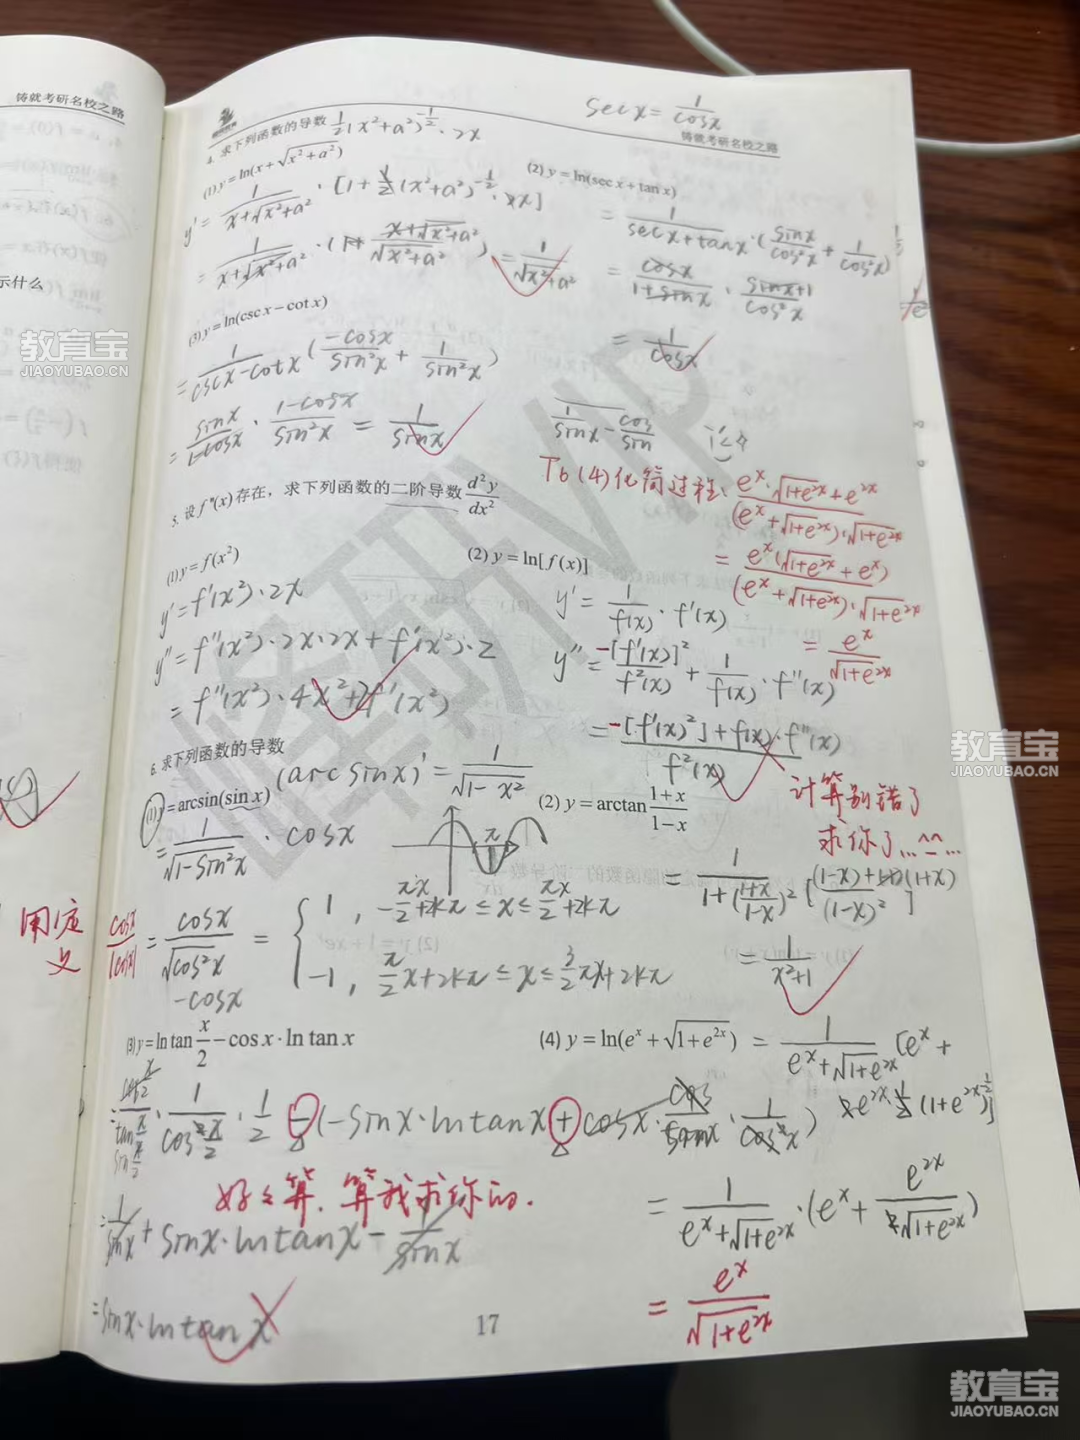 铸就考研名校之路
示什么
sec x = 1/cosx
铸就考研名校之路
4. 求下列函数的导数 1/2(x²+a²)^(-1/2)·2x
(1) y=ln(x+√(x²+a²))
y' = 1/(x+√(x²+a²)) · [1+1/2(x²+a²)^(-1/2)·2x]
= 1/(x+√(x²+a²)) · (x+√(x²+a²))/√(x²+a²)) = 1/√(x²+a²)
(2) y=ln(sec x+tan x)
= 1/(secx+tanx)·(sinx/cos²x + 1/cos²x)
= cosx/(1+sinx) · (sinx+1)/cos²x
= 1/cosx
(3) y=ln(csc x−cot x)
= 1/(cscx−cotx) (−cosx/sin²x + 1/sin²x)
= sinx/(1−cosx) · (1−cosx)/sin²x = 1/sinx
1/sinx − cos/sin
T6(4)化简过程: (e^x·√(1+e^2x)+e^2x)/((e^x+√(1+e^2x))·√(1+e^2x))
= e^x(√(1+e^2x)+e^x)/((e^x+√(1+e^2x))·√(1+e^2x))
= e^x/√(1+e^2x)
5. 设f''(x)存在，求下列函数的二阶导数 d²y/dx²
(1) y=f(x²)
y'=f'(x²)·2x
y''=f''(x²)·2x·2x+f'(x²)·2
=f''(x²)·4x²+2f'(x²)
(2) y=ln[f(x)]
y'= 1/f(x) · f'(x)
y''= −[f'(x)]²/f²(x) + 1/f(x) · f''(x)
= (−[f'(x)²]+f(x)·f''(x))/f²(x)
计算别错了
求你了...^_^...
6. 求下列函数的导数
(arcsinx)' = 1/√(1−x²)
(1) y=arcsin(sin x)
= 1/√(1−sin²x) · cosx
用定义
cosx/|cosx| = cosx/√cos²x = { 1, −π/2+2kπ ≤ x ≤ π/2+2kπ
−1, π/2+2kπ ≤ x ≤ 3/2π+2kπ
−cosx
π
(2) y=arctan (1+x)/(1−x)
= 1/(1+((1+x)/(1−x))²) [((1−x)+(1+x))/(1−x)²]
= 1/(x²+1)
(3) y=ln tan x/2 −cos x·ln tan x
1/cos²(x/2) · 1/2 −(−sinx·lntanx + cosx·cos/sinx·1/cos²x)
好好算, 算我求你的.
= 1/sinx + sinx·lntanx − 1/sinx
= sinx·lntanx
(4) y=ln(e^x+√(1+e^2x)) = 1/(e^x+√(1+e^2x)) [e^x+
2e^2x·1/2(1+e^2x)^(-1/2)]
= 1/(e^x+√(1+e^2x)) ·(e^x+ e^2x/√(1+e^2x))
= e^x/√(1+e^2x)
17
教育宝
JIAOYUBAO.CN
教育宝
JIAOYUBAO.CN
教育宝
JIAOYUBAO.CN